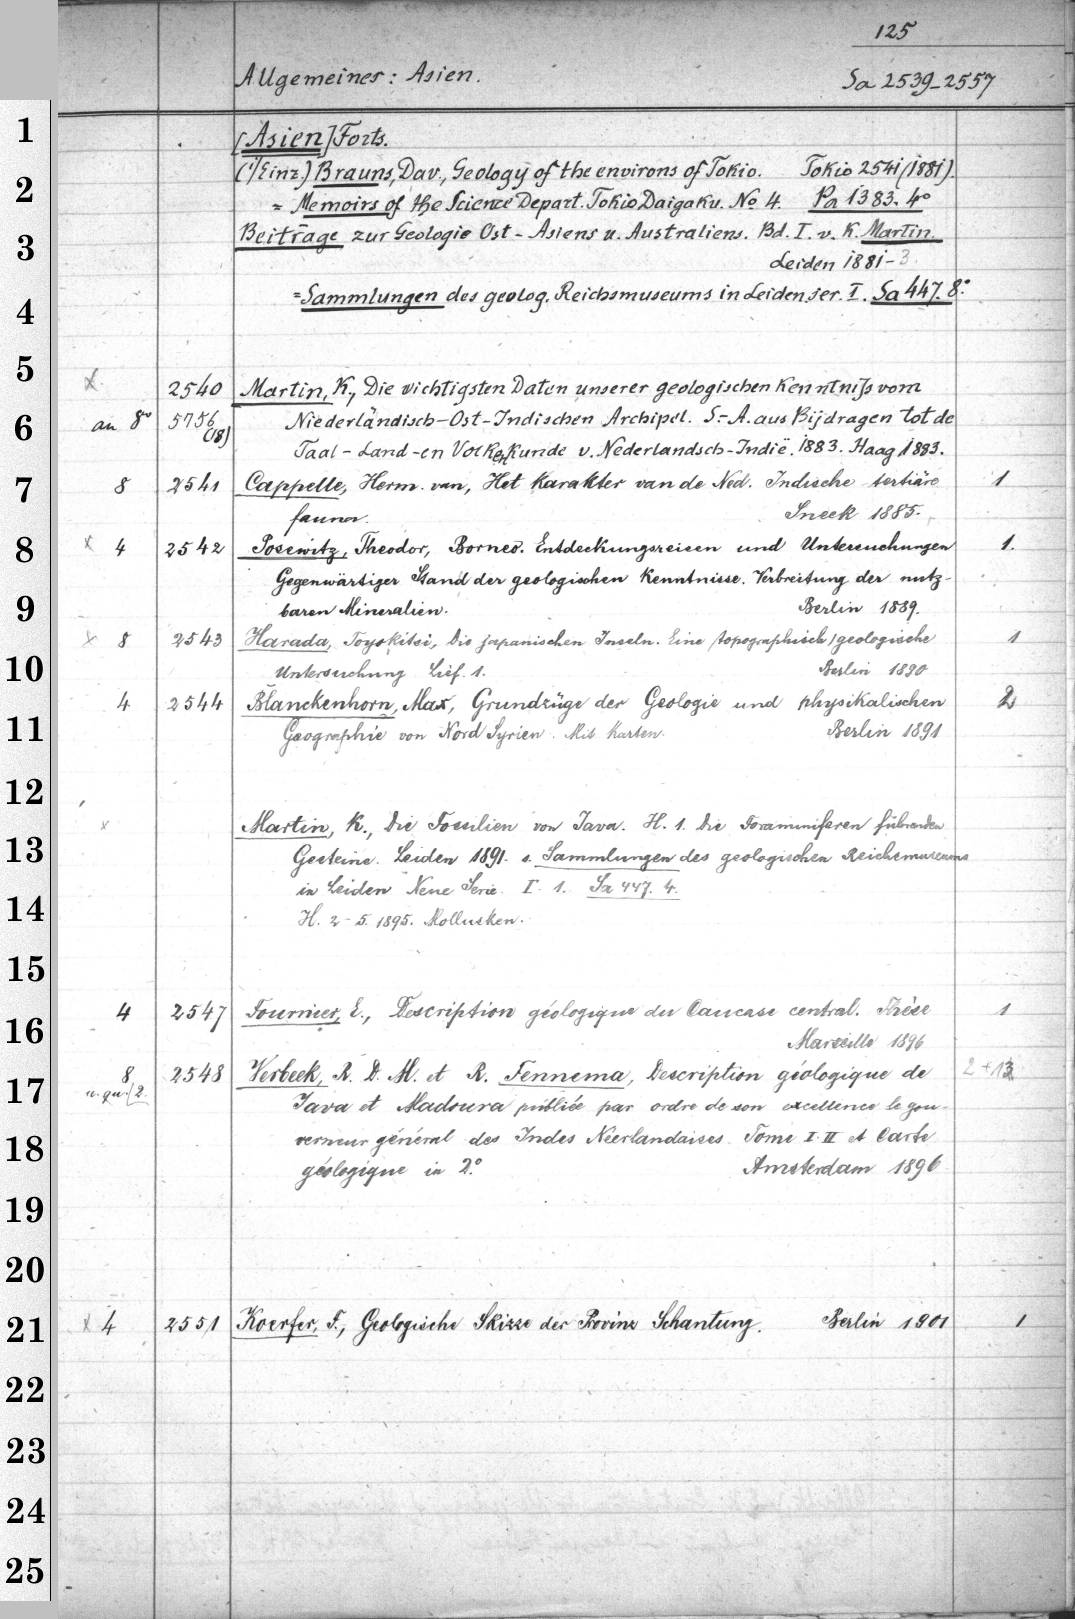 125
Allgemeines: Asien. Sa 2539-2557
1
[Asien] Forts.
(1/Einz.) Brauns, Dav., Geology of the environs of Tokio. Tokio 2541 (1881).
2
= Memoirs of the Science Depart. Tokio Daigaku. No 4. Pa 1383. 4o
3
Beiträge zur Geologie Ost-Asiens u. Australiens. Bd. I. v. K. Martin.
Leiden 1881-3.
4
=Sammlungen des geolog. Reichsmuseums in Leiden, ser. I. Sa 447. 8o.
5
x 2540 Martin, K., Die wichtigsten Daten unserer geologischen Kenntniſs vom
6
an 8o 5756 (18) Niederländisch-Ost-Indischen Archipel. S.-A. aus Bijdragen tot de
Taal-Land-en Volkenkunde v. Nederlandsch-Indië. 1883. Haag 1883.
7
8 2541 Cappelle, Herm. van, Het Karakter van de Ned. Indische tertiäre 1
fauna. Sneek 1885.
8
x 4 2542 Posewitz, Theodor, Borneo. Entdeckungsreisen und Untersuchungen 1.
Gegenwärtiger Stand der geologischen Kenntnisse. Verbreitung der nutz-
9
baren Mineralien. Berlin 1889.
x 8 2543 Harada, Toyokitsi, Die japanischen Inseln. Eine topographisch/geologische 1
10
Untersuchung Lief. 1. Berlin 1890
4 2544 Blanckenhorn, Max, Grundzüge der Geologie und physikalischen 2
11
Geographie von Nord Syrien. Mit Karten. Berlin 1891
12
13
x Martin, K., Die Fossilien von Java. H. 1. Die Foraminiferen führenden
Gesteine. Leiden 1891. s. Sammlungen des geologischen Reichsmuseums
14
in Leiden Neue Serie. I. 1. Sa 447. 4.
H. 2-5. 1895. Mollusken.
15
16
4 2547 Fournier, E., Description géologique du Caucase central. Thèse 1
Marseille 1896
17
8 2548 Verbeek, R. D. M. et R. Fennema, Description géologique de 2+13
u. qu. 2. Java et Madoura publiée par ordre de son excellence le gou-
18
verneur général des Indes Néerlandaises. Tome I. II et Carte
géologique in 2o. Amsterdam 1896
19
20
21
x 4 2551 Koerfer, F., Geologische Skizze der Provinz Schantung. Berlin 1901 1
22
23
24
25